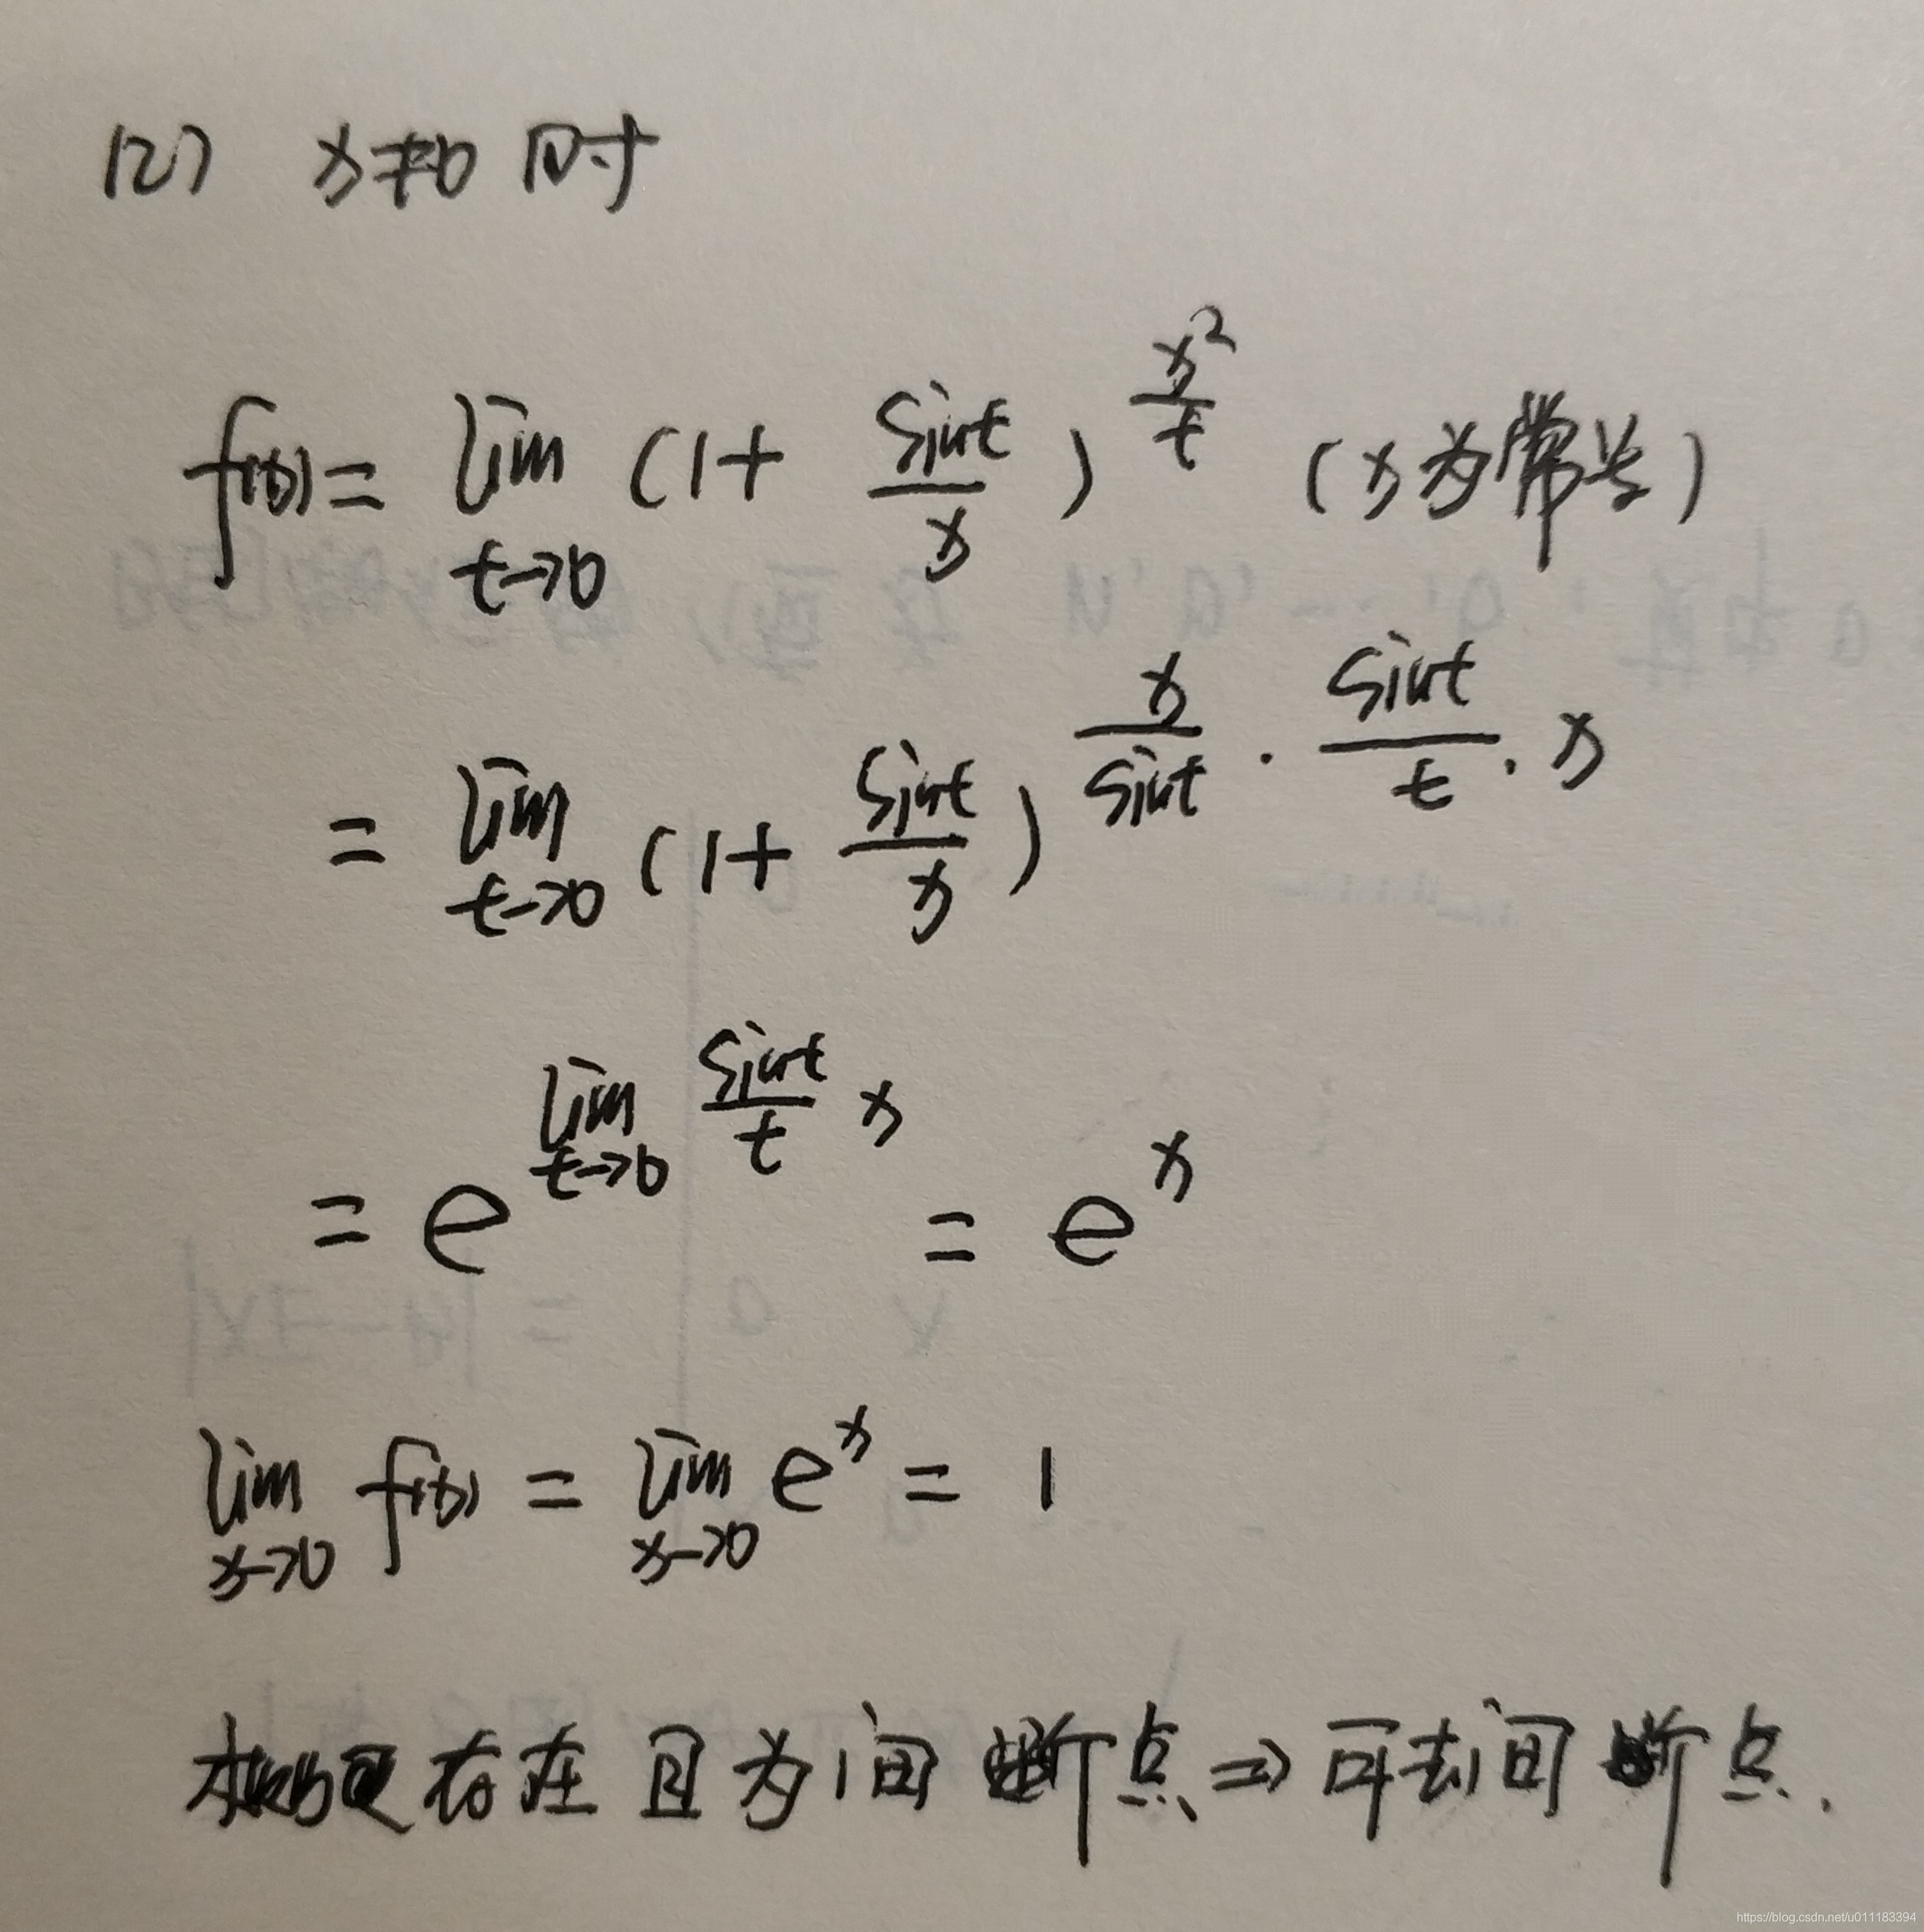 (2) x≠0 时
f(x) = lim_{t→0} (1 + sint/x)^{x²/t} (x为常数)
= lim_{t→0} (1 + sint/x)^{x/sint · sint/t · x}
= e^{lim_{t→0} sint/t x} = e^x
lim_{x→0} f(x) = lim_{x→0} e^x = 1
极限存在且为间断点 ⇒ 可去间断点.
https://blog.csdn.net/u011183394